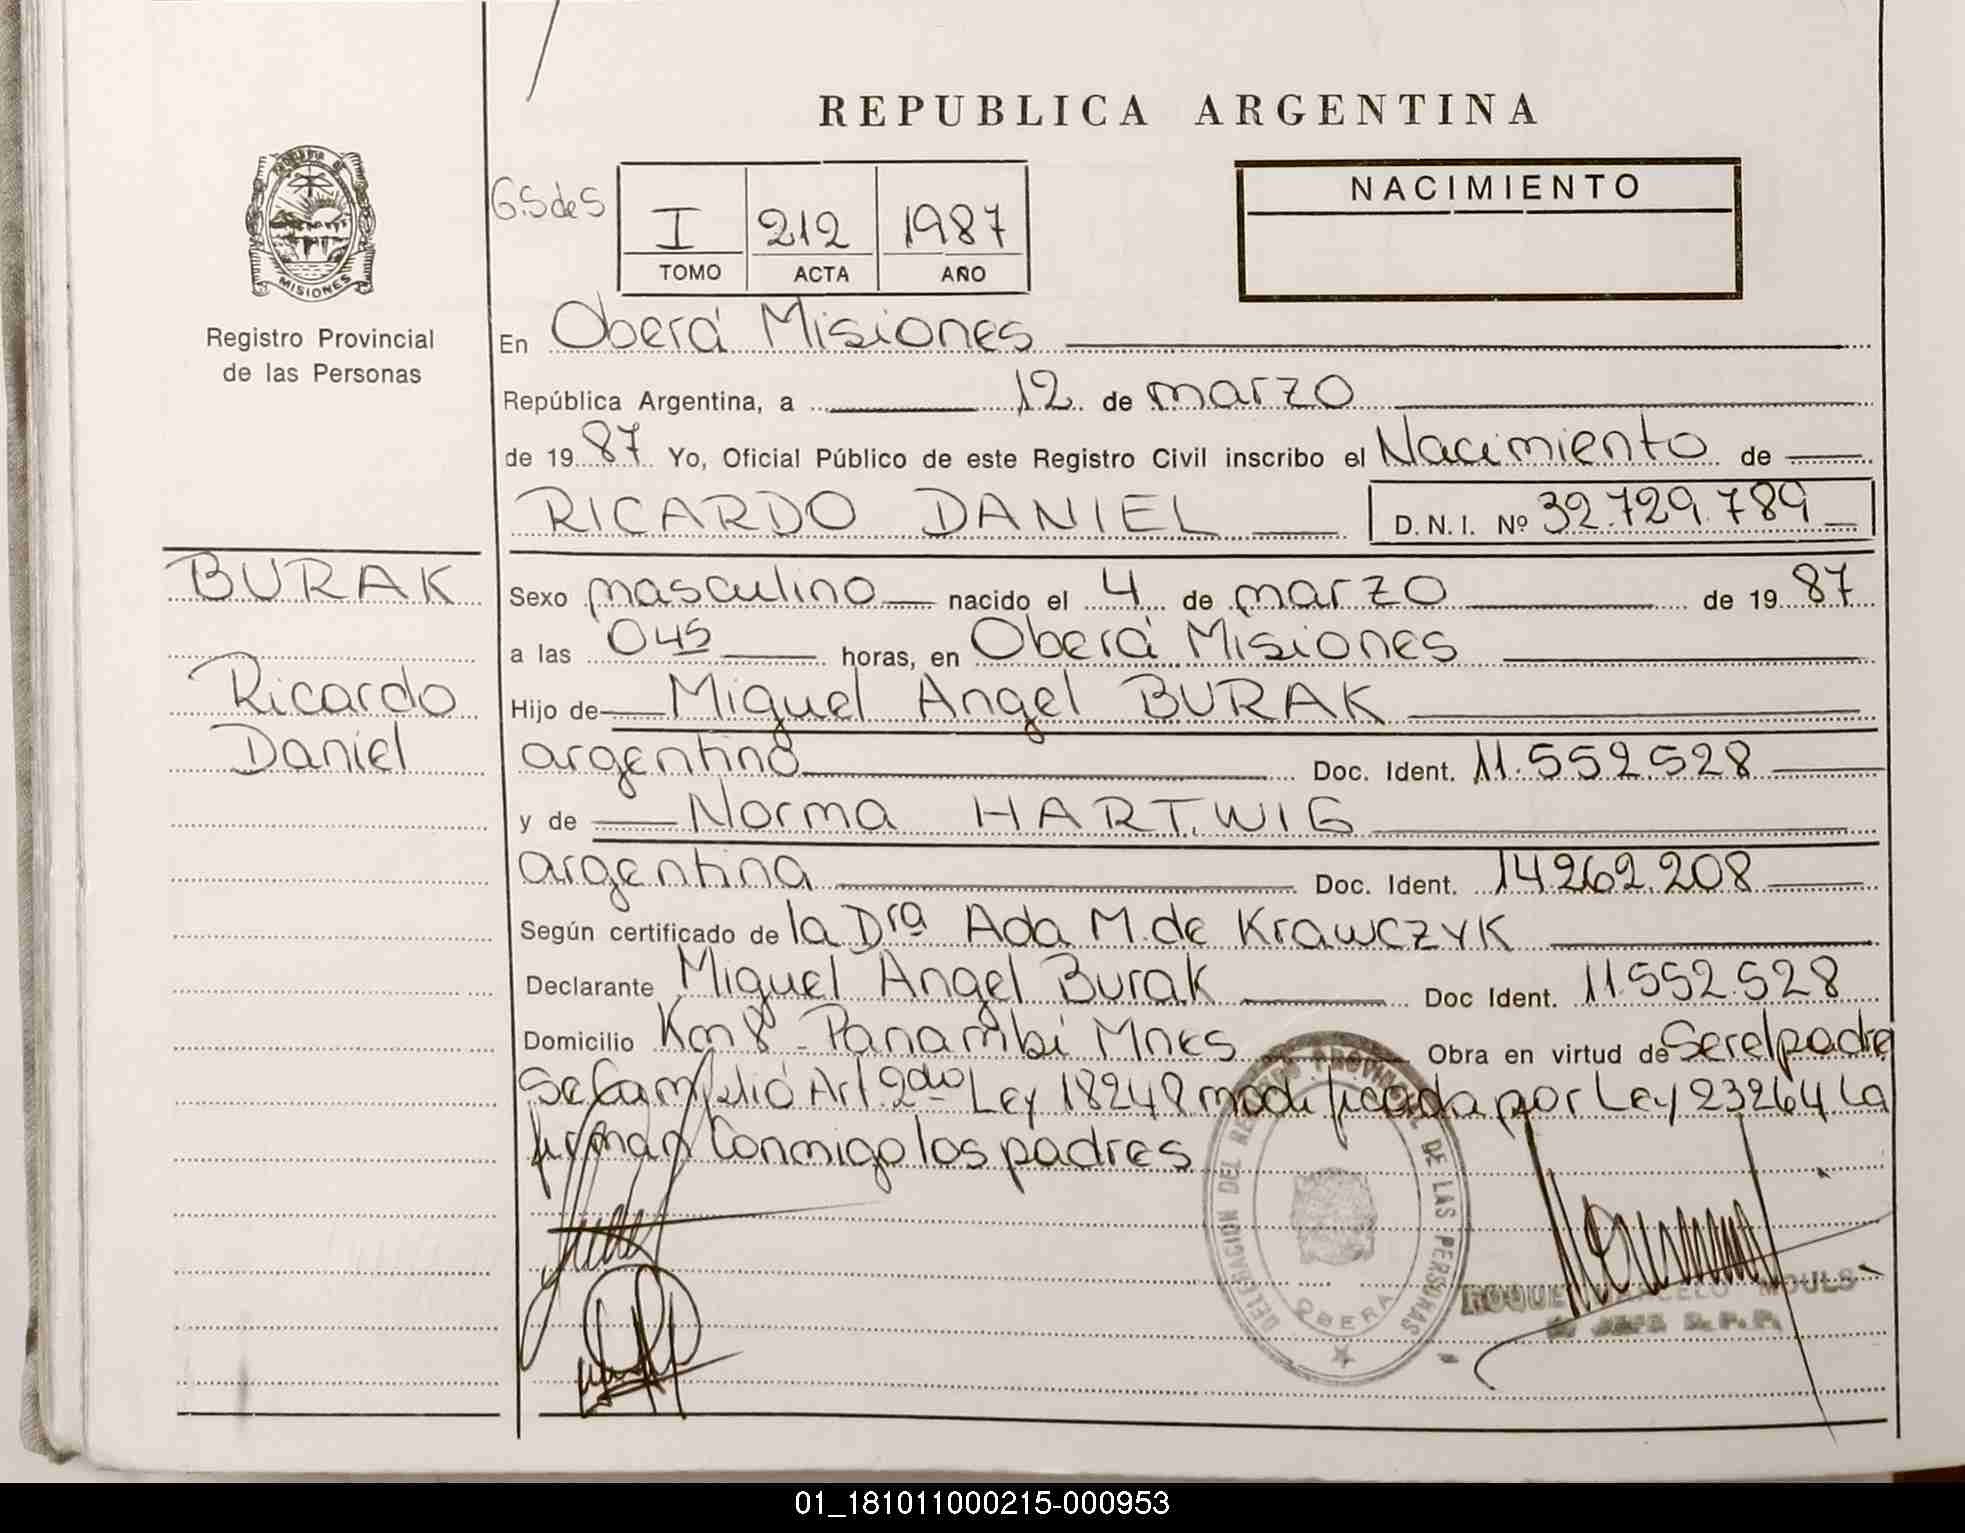 REPUBLICA ARGENTINA
NACIMIENTO
G.S de S
I 212 1987
TOMO ACTA AÑO
MISIONES
Registro Provincial
de las Personas
En Oberá Misiones
República Argentina, a 12 de marzo
de 1987 Yo, Oficial Público de este Registro Civil inscribo el Nacimiento de
RICARDO DANIEL D.N.I. Nº 32.729.789
BURAK
Ricardo
Daniel
Sexo masculino nacido el 4 de marzo de 1987
a las 045 horas, en Oberá Misiones
Hijo de Miguel Angel BURAK
argentino Doc. Ident. 11.552.528
y de Norma HARTWIG
argentina Doc. Ident. 14.262.208
Según certificado de la Dra Ada M. de Krawczyk
Declarante Miguel Angel Burak Doc Ident. 11.552.528
Domicilio Km 8 - Panambí Mnes Obra en virtud de Ser el padre
Se Cumplió Art 2do Ley 18248 modificada por Ley 23264 La
firman Conmigo los padres
DELEGACION DEL REGISTRO PROVINCIAL DE LAS PERSONAS
OBERA
ROQUE MARCELO MOULS
JEFE R.P.P.
01_181011000215-000953